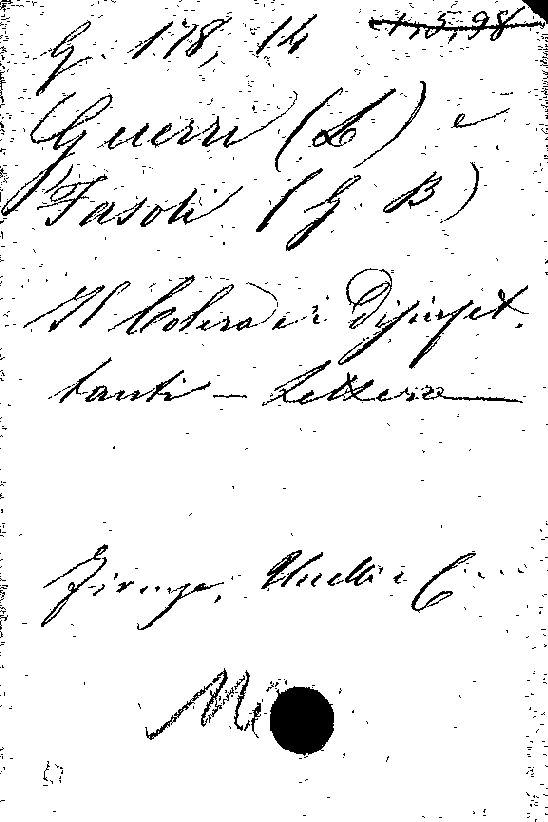 G. 178, 14
1, 5, 98
Guerri (L) e
Fasoli (G. B)
Il Colera e i Disinfet.
tanti - Lettera
Firenze, C...